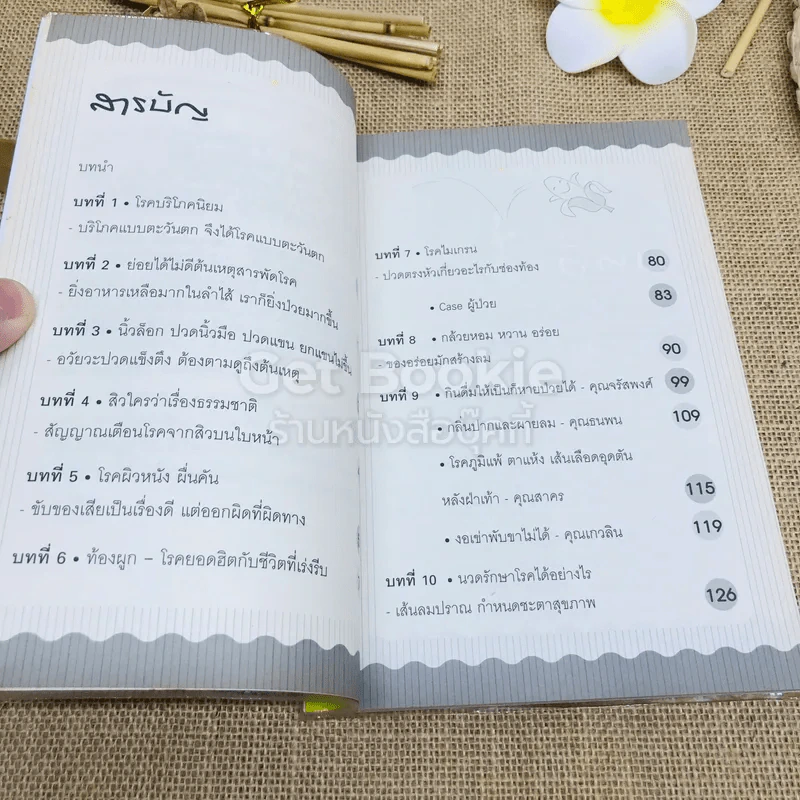 สารบัญ
บทนำ
บทที่ 1 • โรคบริโภคนิยม
- บริโภคแบบตะวันตก จึงได้โรคแบบตะวันตก
บทที่ 2 • ย่อยได้ไม่ดีต้นเหตุสารพัดโรค
- ยิ่งอาหารเหลือมากในลำไส้ เราก็ยิ่งป่วยมากขึ้น
บทที่ 3 • นิ้วล็อก ปวดนิ้วมือ ปวดแขน ยกแขนไม่ขึ้น
- อวัยวะปวดแข็งตึง ต้องตามดูถึงต้นเหตุ
บทที่ 4 • สิวใครว่าเรื่องธรรมชาติ
- สัญญาณเตือนโรคจากสิวบนใบหน้า
บทที่ 5 • โรคผิวหนัง ผื่นคัน
- ขับของเสียเป็นเรื่องดี แต่ออกผิดที่ผิดทาง
บทที่ 6 • ท้องผูก – โรคยอดฮิตกับชีวิตที่เร่งรีบ
บทที่ 7 • โรคไมเกรน
- ปวดตรงหัวเกี่ยวอะไรกับช่องท้อง 80
• Case ผู้ป่วย 83
บทที่ 8 • กล้วยหอม หวาน อร่อย
- ของอร่อยมักสร้างลม 90
บทที่ 9 • กินดื่มให้เป็นก็หายป่วยได้ - คุณจรัสพงศ์ 99
• กลิ่นปากและผายลม - คุณธนพน 109
• โรคภูมิแพ้ ตาแห้ง เส้นเลือดอุดตัน
หลังฝ่าเท้า - คุณสาคร 115
• งอเข่าพับขาไม่ได้ - คุณเกวลิน 119
บทที่ 10 • นวดรักษาโรคได้อย่างไร
- เส้นลมปราณ กำหนดชะตาสุขภาพ 126
Get Bookie
ร้านหนังสือบุ๊คกี้